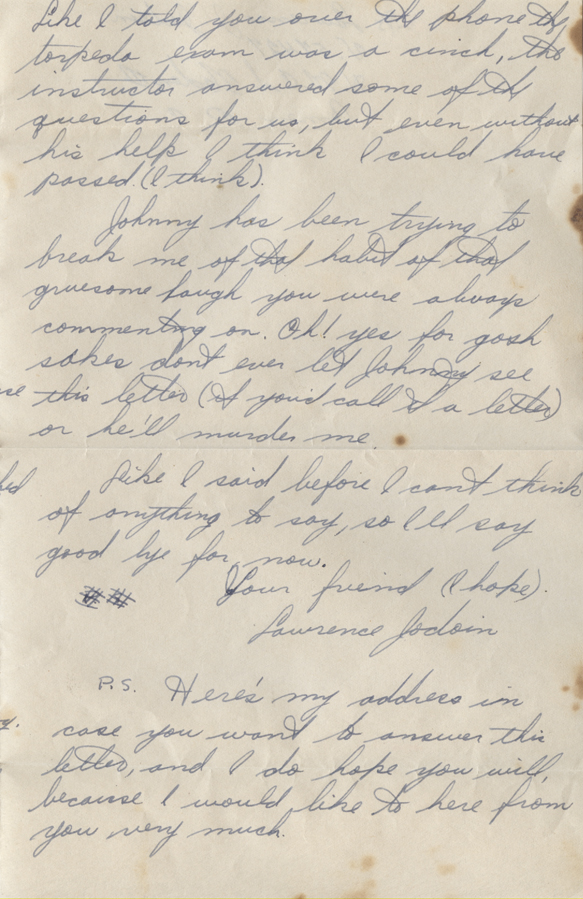 Like I told you over the phone the
torpedo exam was a cinch, the
instructor answered some of the
questions for us, but even without
his help I think I could have
passed. (I think).
Johnny has been trying to
break me of that habit of that
gruesome laugh you were always
commenting on. Oh! yes for gosh
sakes dont ever let Johnny see
this letter (if you'd call it a letter)
or he'll murder me.
Like I said before I cant think
of anything to say, so I'll say
good bye for now.
Your friend (I hope).
Lawrence Jodoin
P.S. Here's my address in
case you want to answer this
letter, and I do hope you will,
because I would like to here from
you very much.